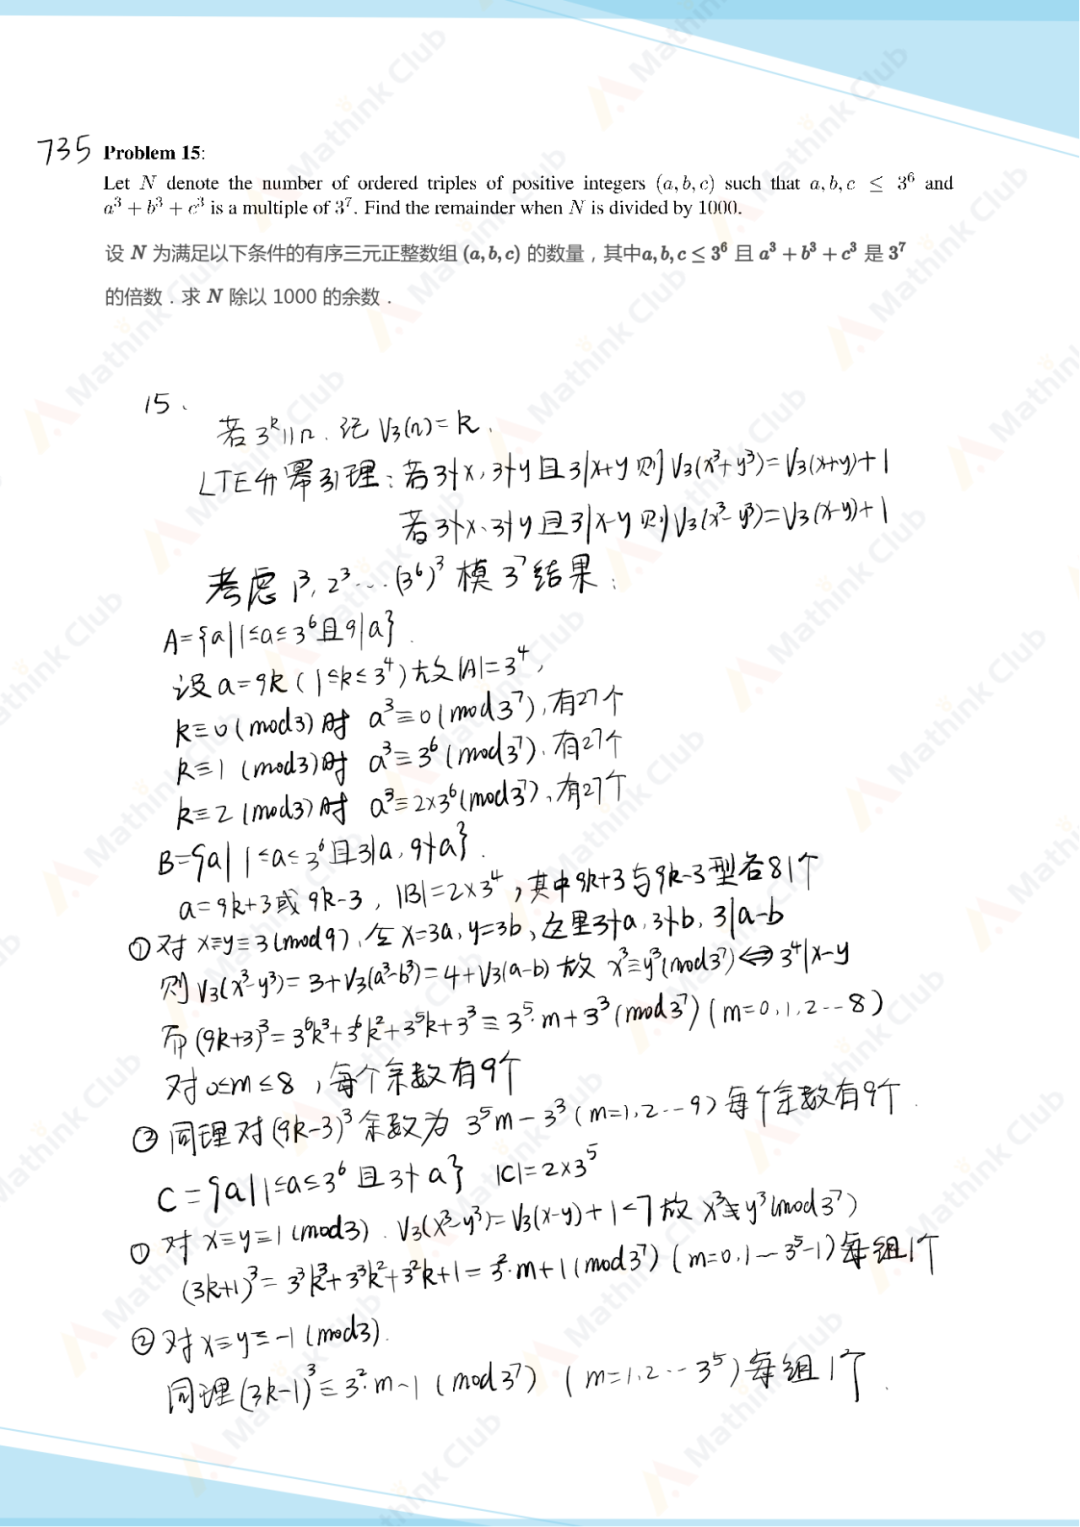 735 Problem 15:
Let N denote the number of ordered triples of positive integers (a, b, c) such that a, b, c ≤ 3⁶ and
a³ + b³ + c³ is a multiple of 3⁷. Find the remainder when N is divided by 1000.
设 N 为满足以下条件的有序三元正整数组 (a, b, c) 的数量，其中a, b, c ≤ 3⁶ 且 a³ + b³ + c³ 是 3⁷
的倍数．求 N 除以 1000 的余数．
15.
若3ᵏ||n，记 V₃(n)=k.
LTE升幂引理：若3∤x, 3∤y且3|x+y则V₃(x³+y³)=V₃(x+y)+1
若3∤x、3∤y且3|x-y则V₃(x³-y³)=V₃(x-y)+1
考虑 1³, 2³...(3⁶)³ 模 3⁷结果：
A={a|1≤a≤3⁶且9|a}.
设 a=9k (1≤k≤3⁴) 故|A|=3⁴,
k≡0(mod3)时 a³≡0(mod3⁷), 有27个
k≡1(mod3)时 a³≡3⁶(mod3⁷), 有27个
k≡2(mod3)时 a³≡2×3⁶(mod3⁷), 有27个
B={a|1≤a≤3⁶且3|a, 9∤a}.
a=9k+3或9k-3, |B|=2×3⁴, 其中9k+3与9k-3型各81个
①对 x≡y≡3(mod9), 令x=3a, y=3b, 这里3∤a, 3∤b, 3|a-b
则V₃(x³-y³)=3+V₃(a³-b³)=4+V₃(a-b) 故 x³≡y³(mod3⁷)⇔3⁴|x-y
而(9k+3)³=3⁶k³+3⁶k²+3⁵k+3³≡3⁵·m+3³(mod3⁷)(m=0,1,2...8)
对0≤m≤8, 每个余数有9个
②同理对(9k-3)³余数为 3⁵m-3³(m=1,2...9)每个余数有9个.
C={a|1≤a≤3⁶且3∤a} |C|=2×3⁵
①对 x≡y≡1(mod3). V₃(x³-y³)=V₃(x-y)+1<7故 x³≢y³(mod3⁷)
(3k+1)³=3³k³+3³k²+3²k+1=3²·m+1(mod3⁷)(m=0,1…3⁵-1)每组1个
②对 x≡y≡-1(mod3).
同理(3k-1)³≡3²·m-1(mod3⁷)(m=1,2...3⁵)每组1个.